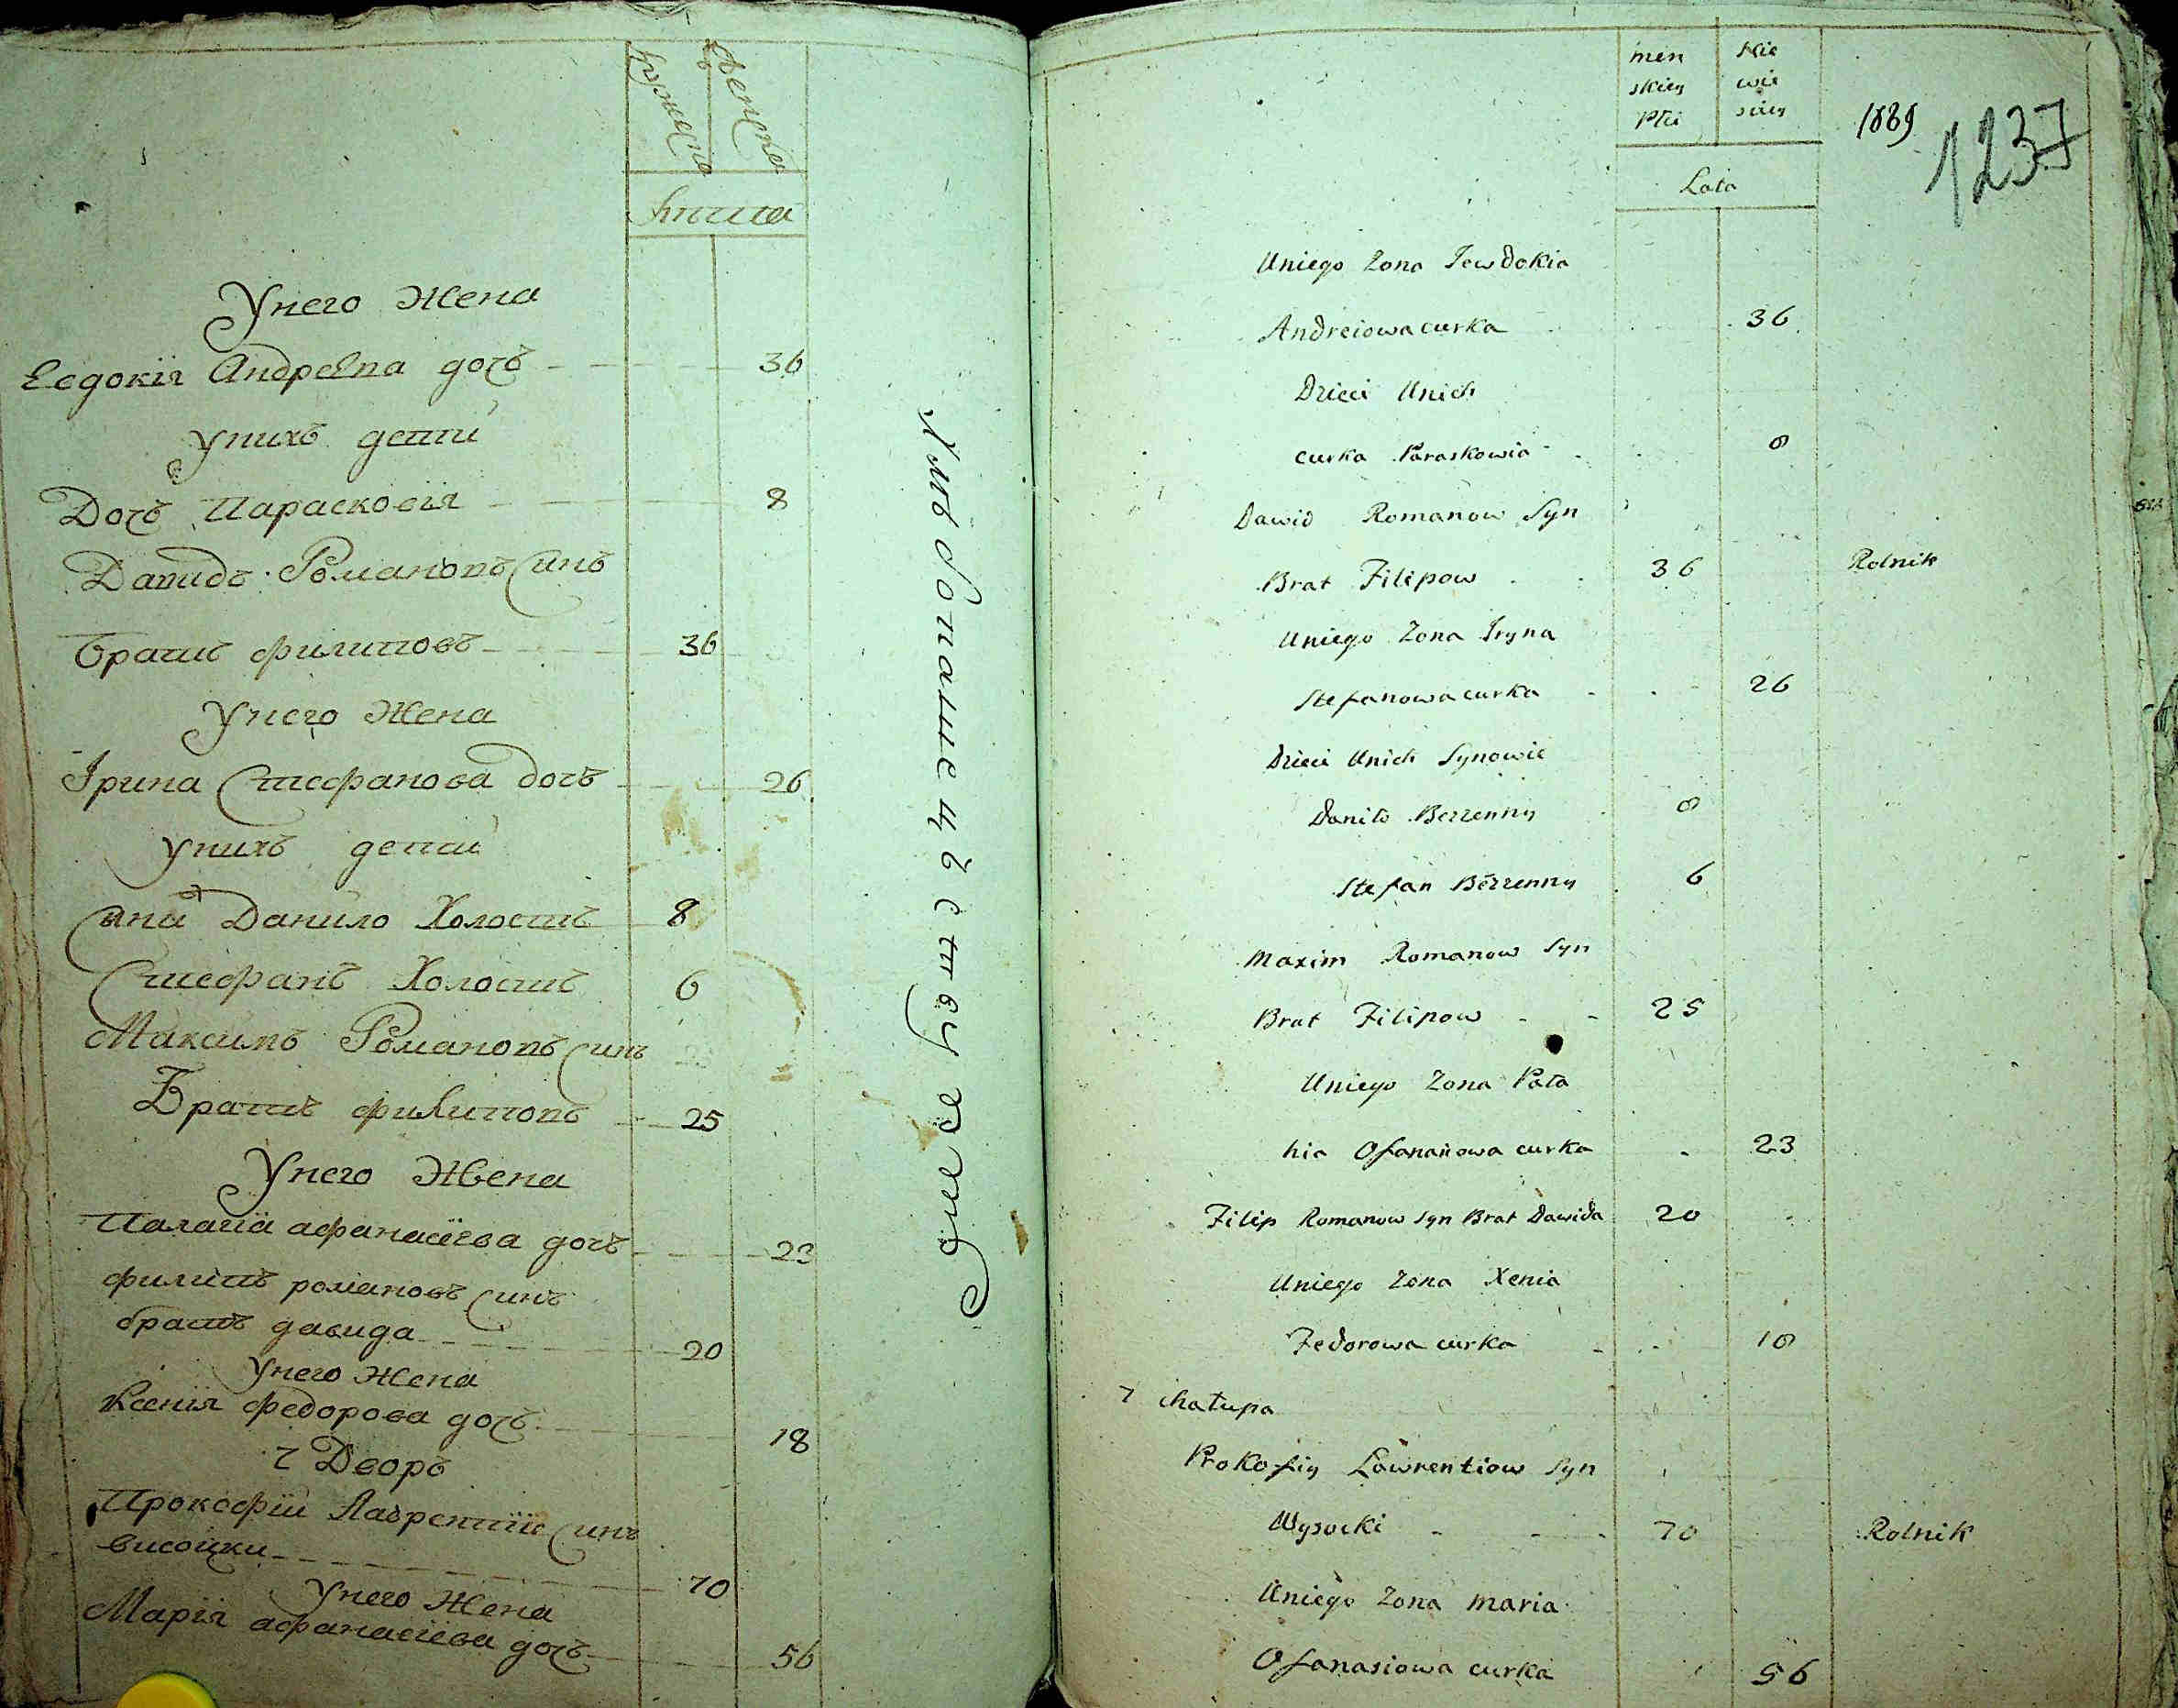 мужеска
женска
лѣта
Унего Жена
Евдокія Андреѣва дочъ 36
унихъ дѣти
Дочъ Парасковія 8
Давидъ Романовъ Синъ
Братъ филиповъ 36
Унего Жена
Ірина Стефанова дочъ 26
унихъ дѣти
Данило Холостъ 8
Стефанъ Холостъ 6
Максимъ Романовъ Синъ
Братъ филиповъ 25
Унего Жена
Палагія афанасіева дочъ 23
филипъ романовъ Синъ
братъ давида 20
Унего Жена
Ксенія федорова дочъ 18
7 Дворъ
Прокофій Лаврентіїв Синъ
висоцки 70
Унего Жена
Марія афанасіева дочъ 56
men skiey Płci
Kie wie skiey
Lata
1237
Uniego Zona Jewdokia
Andreiowa curka 36
Dzieci Unich
curka Paraskowia 8
Dawid Romanow Syn
Brat Filipow 36 Rolnik
Uniego Zona Iryna
Stefanowa curka 26
Dzieci Unich Synowie
Daniło Bezzenny 8
Stefan Bezzenny 6
Maxim Romanow Syn
Brat Filipow 25
Uniego Zona Pała
hia Ofanasiowa curka 23
Filip Romanow Syn Brat Dawida 20
Uniego Zona Xenia
Fedorowa curka 18
7 Chałupa
Prokofiy Ławrentiow Syn
Wysocki 70 Rolnik
Uniego Zona Maria
Ofanasiowa curka 56